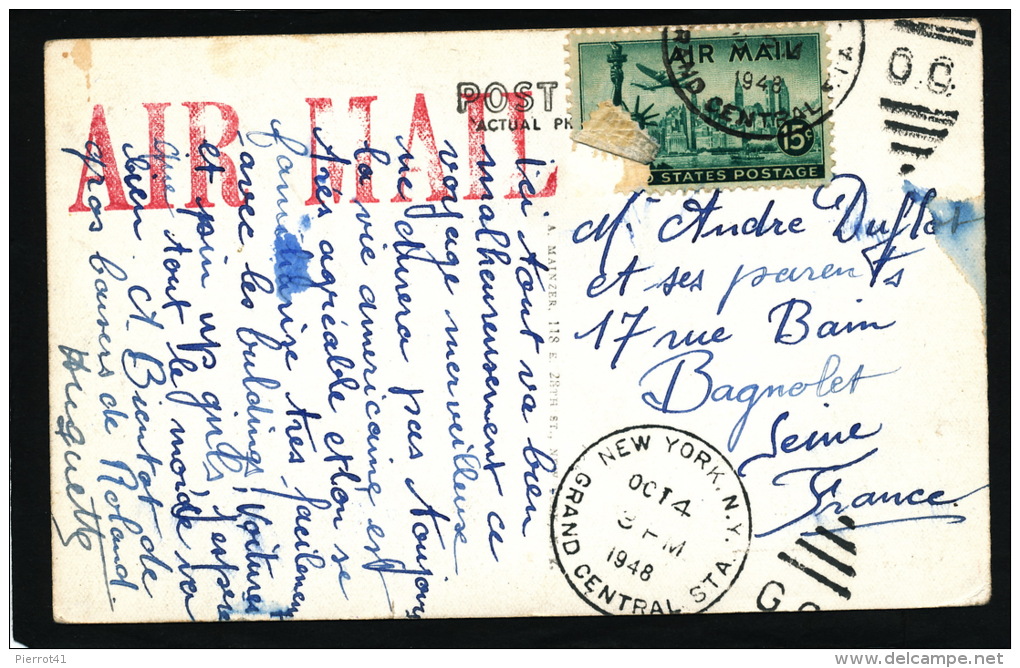 AIR MAIL
POST
ACTUAL PH
AIR MAIL
15¢
D STATES POSTAGE
1948
RAND CENTRAL STA
O.G.
Ici tout va bien
malheureusement ce
voyage merveilleux
ne durera pas toujours
la vie américaine est
très agréable et l'on se
familiarise très facilement
avec les buldings! voitures
et pin up girls! J'espère
que tout le monde va
bien. Et Bientot de
gros baisers de Roland.
Huguette
A. MAINZER, 118 E. 28TH ST., N.
Mr Andre Duflot
et ses parents
17 rue Bain
Bagnolet
Seine
France
NEW YORK, N.Y.
OCT 4
3 PM
1948
GRAND CENTRAL STA.
Pierrot41